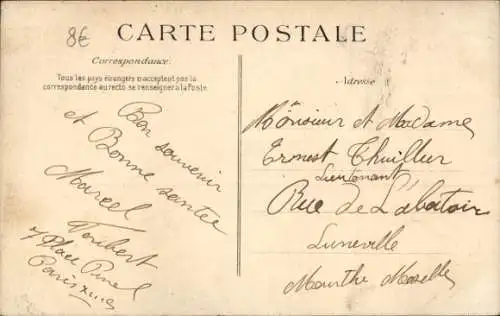 8€
CARTE POSTALE
Correspondance
Tous les pays étrangers n'acceptent pas la
correspondance au recto se renseigner à la Poste
Bon souvenir
et Bonne santée
Marcel
7 Place Pinel
Paris XIII
Adresse
Monsieur et Madame
Ernest Thuillier
Lieutenant
Rue de L'abatoir
Luneville
Meurthe Moselle